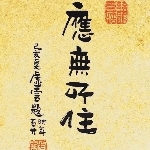 應無所住
己亥夏虛雲題